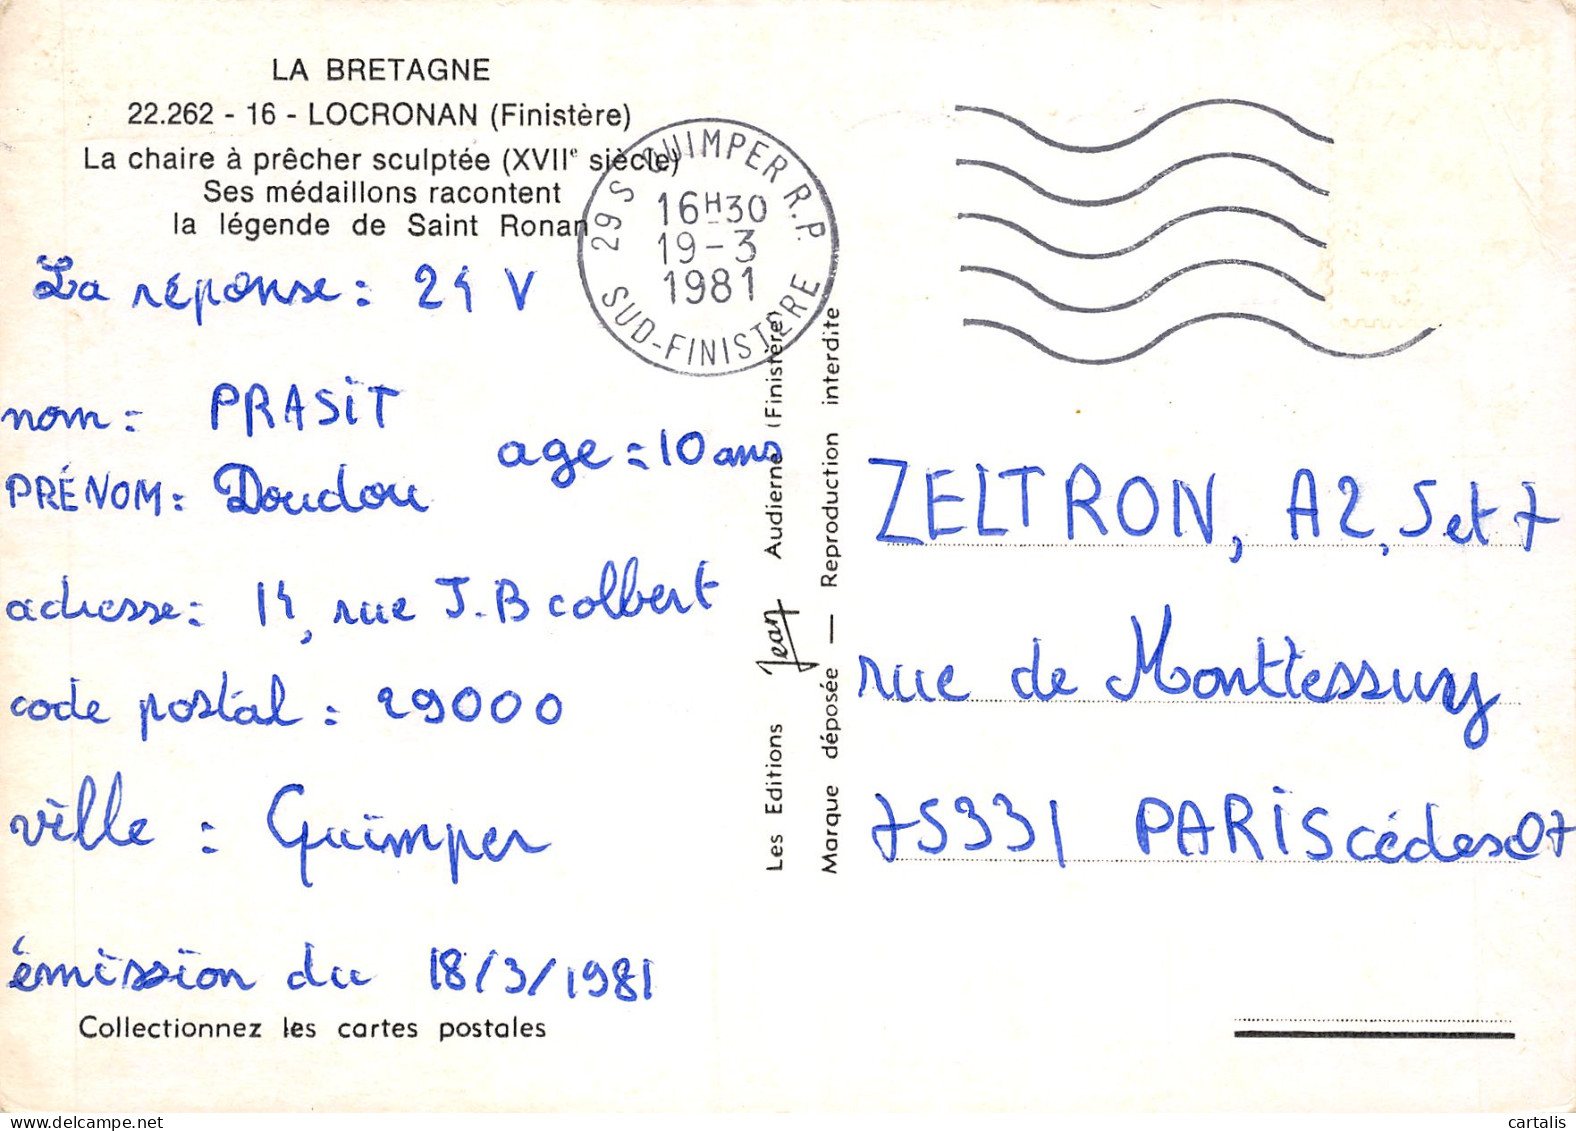 LA BRETAGNE
22.262 - 16 - LOCRONAN (Finistère)
La chaire à prêcher sculptée (XVIIe siècle)
Ses médaillons racontent
la légende de Saint Ronan
29 S QUIMPER R.P.
16H30
19-3
1981
SUD-FINISTÈRE
La réponse : 24 V
nom : PRASiT
age = 10 ans
PRÉNOM : Doudou
adresse : 14, rue J.B colbert
code postal : 29000
ville : Quimper
émission du 18/3/1981
Collectionnez les cartes postales
Les Editions Jean Audierne (Finistère)
Marque déposée — Reproduction interdite
ZELTRON, A2, 5 et 7
rue de Monttessuy
75331 PARiS cédesc 07
cartalis